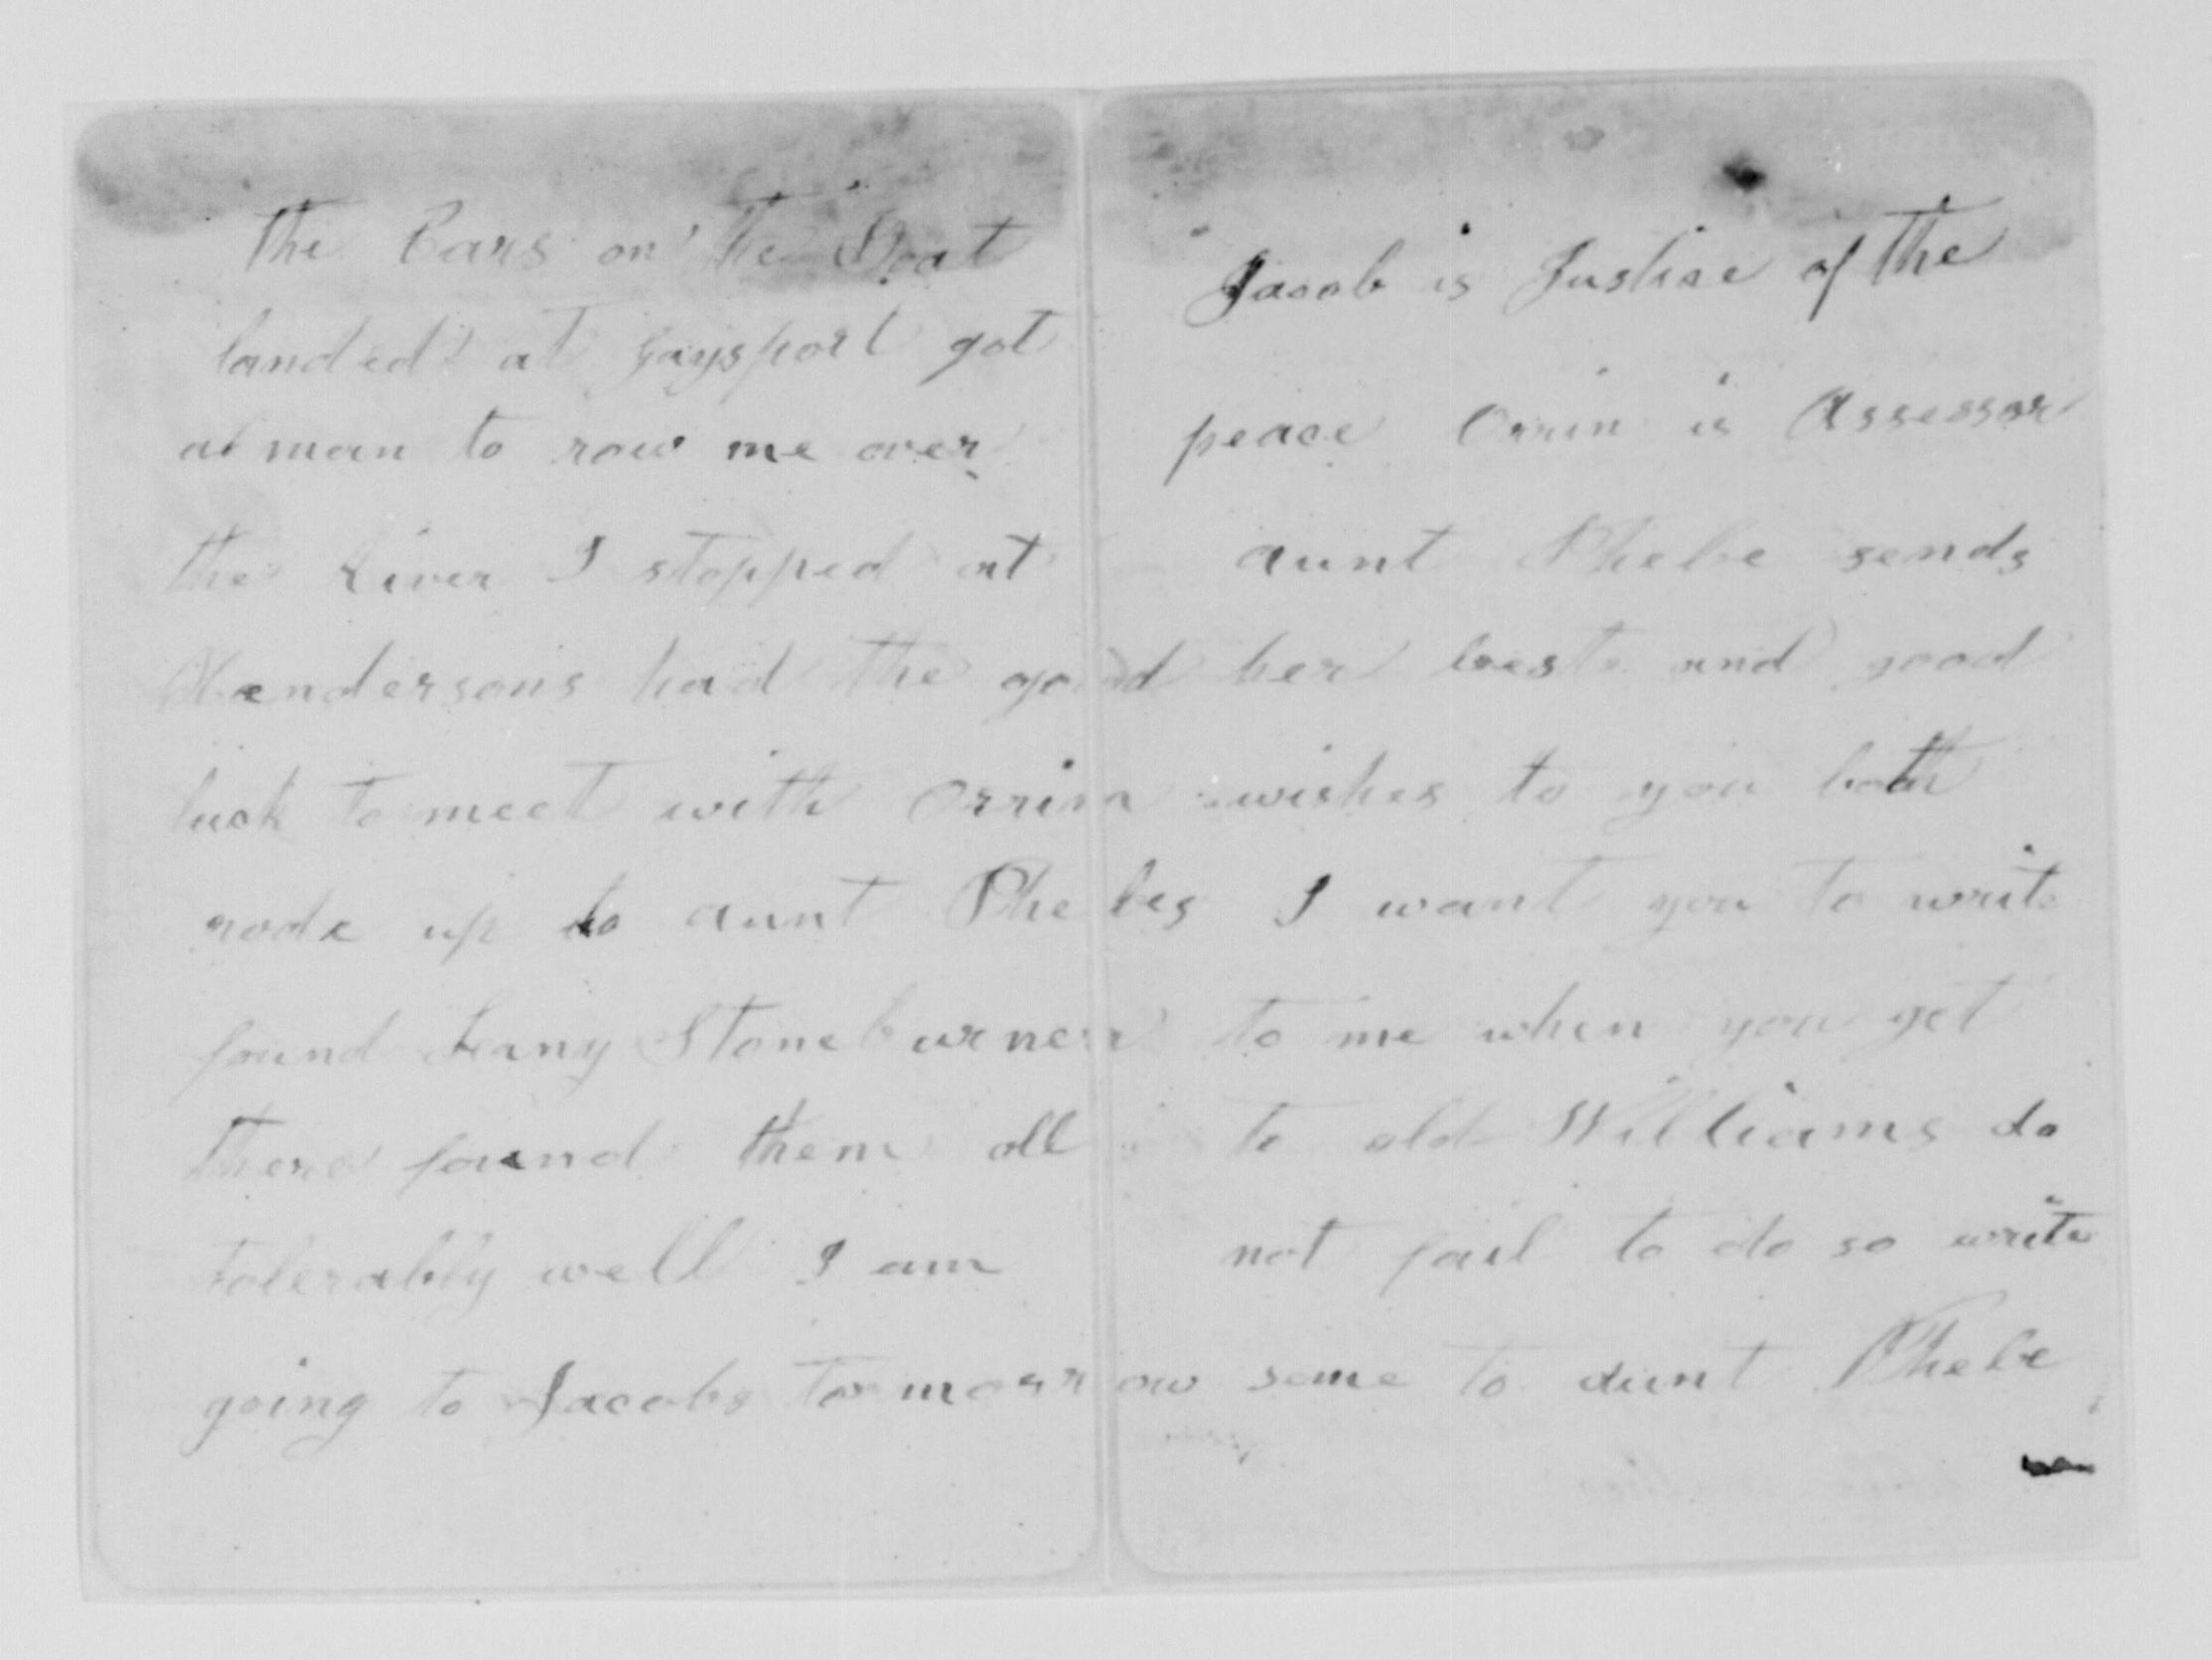 the Cars on the Boat
landed at Gaysport got
a man to row me over
the River I stopped at
Hendersons had the good
luck to meet with Orrin
rode up to aunt Phebes
found Leany Stoneburner
there found them all
tolerably well I am
going to Jacobs tomorrow
Jacob is Justice of the
peace Orrin is Assessor
aunt Phebe sends
her best and good
wishes to you both
I want you to write
to me when you get
to old Williams do
not fail to do so write
some to aunt Phebe